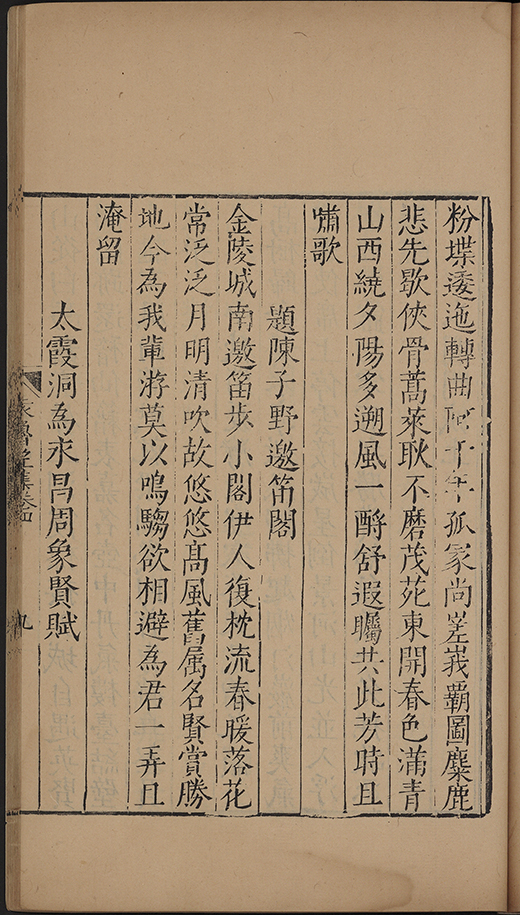 粉堞逶迤轉曲阿千年孤冢尚嵳峩覇圖麋鹿
悲先歇俠骨蒿萊耿不磨茂苑東開春色滿青
山西繞夕陽多遡風一酹舒遐矚共此芳時且
嘯歌
題陳子野邀笛閣
金陵城南邀笛步小閣伊人復枕流春暖落花
常泛泛月明清吹故悠悠髙風舊属名賢賞勝
地今為我輩游莫以鳴騶欲相避為君一弄且
淹留
太霞洞為永昌周象賢賦
集卷四
九